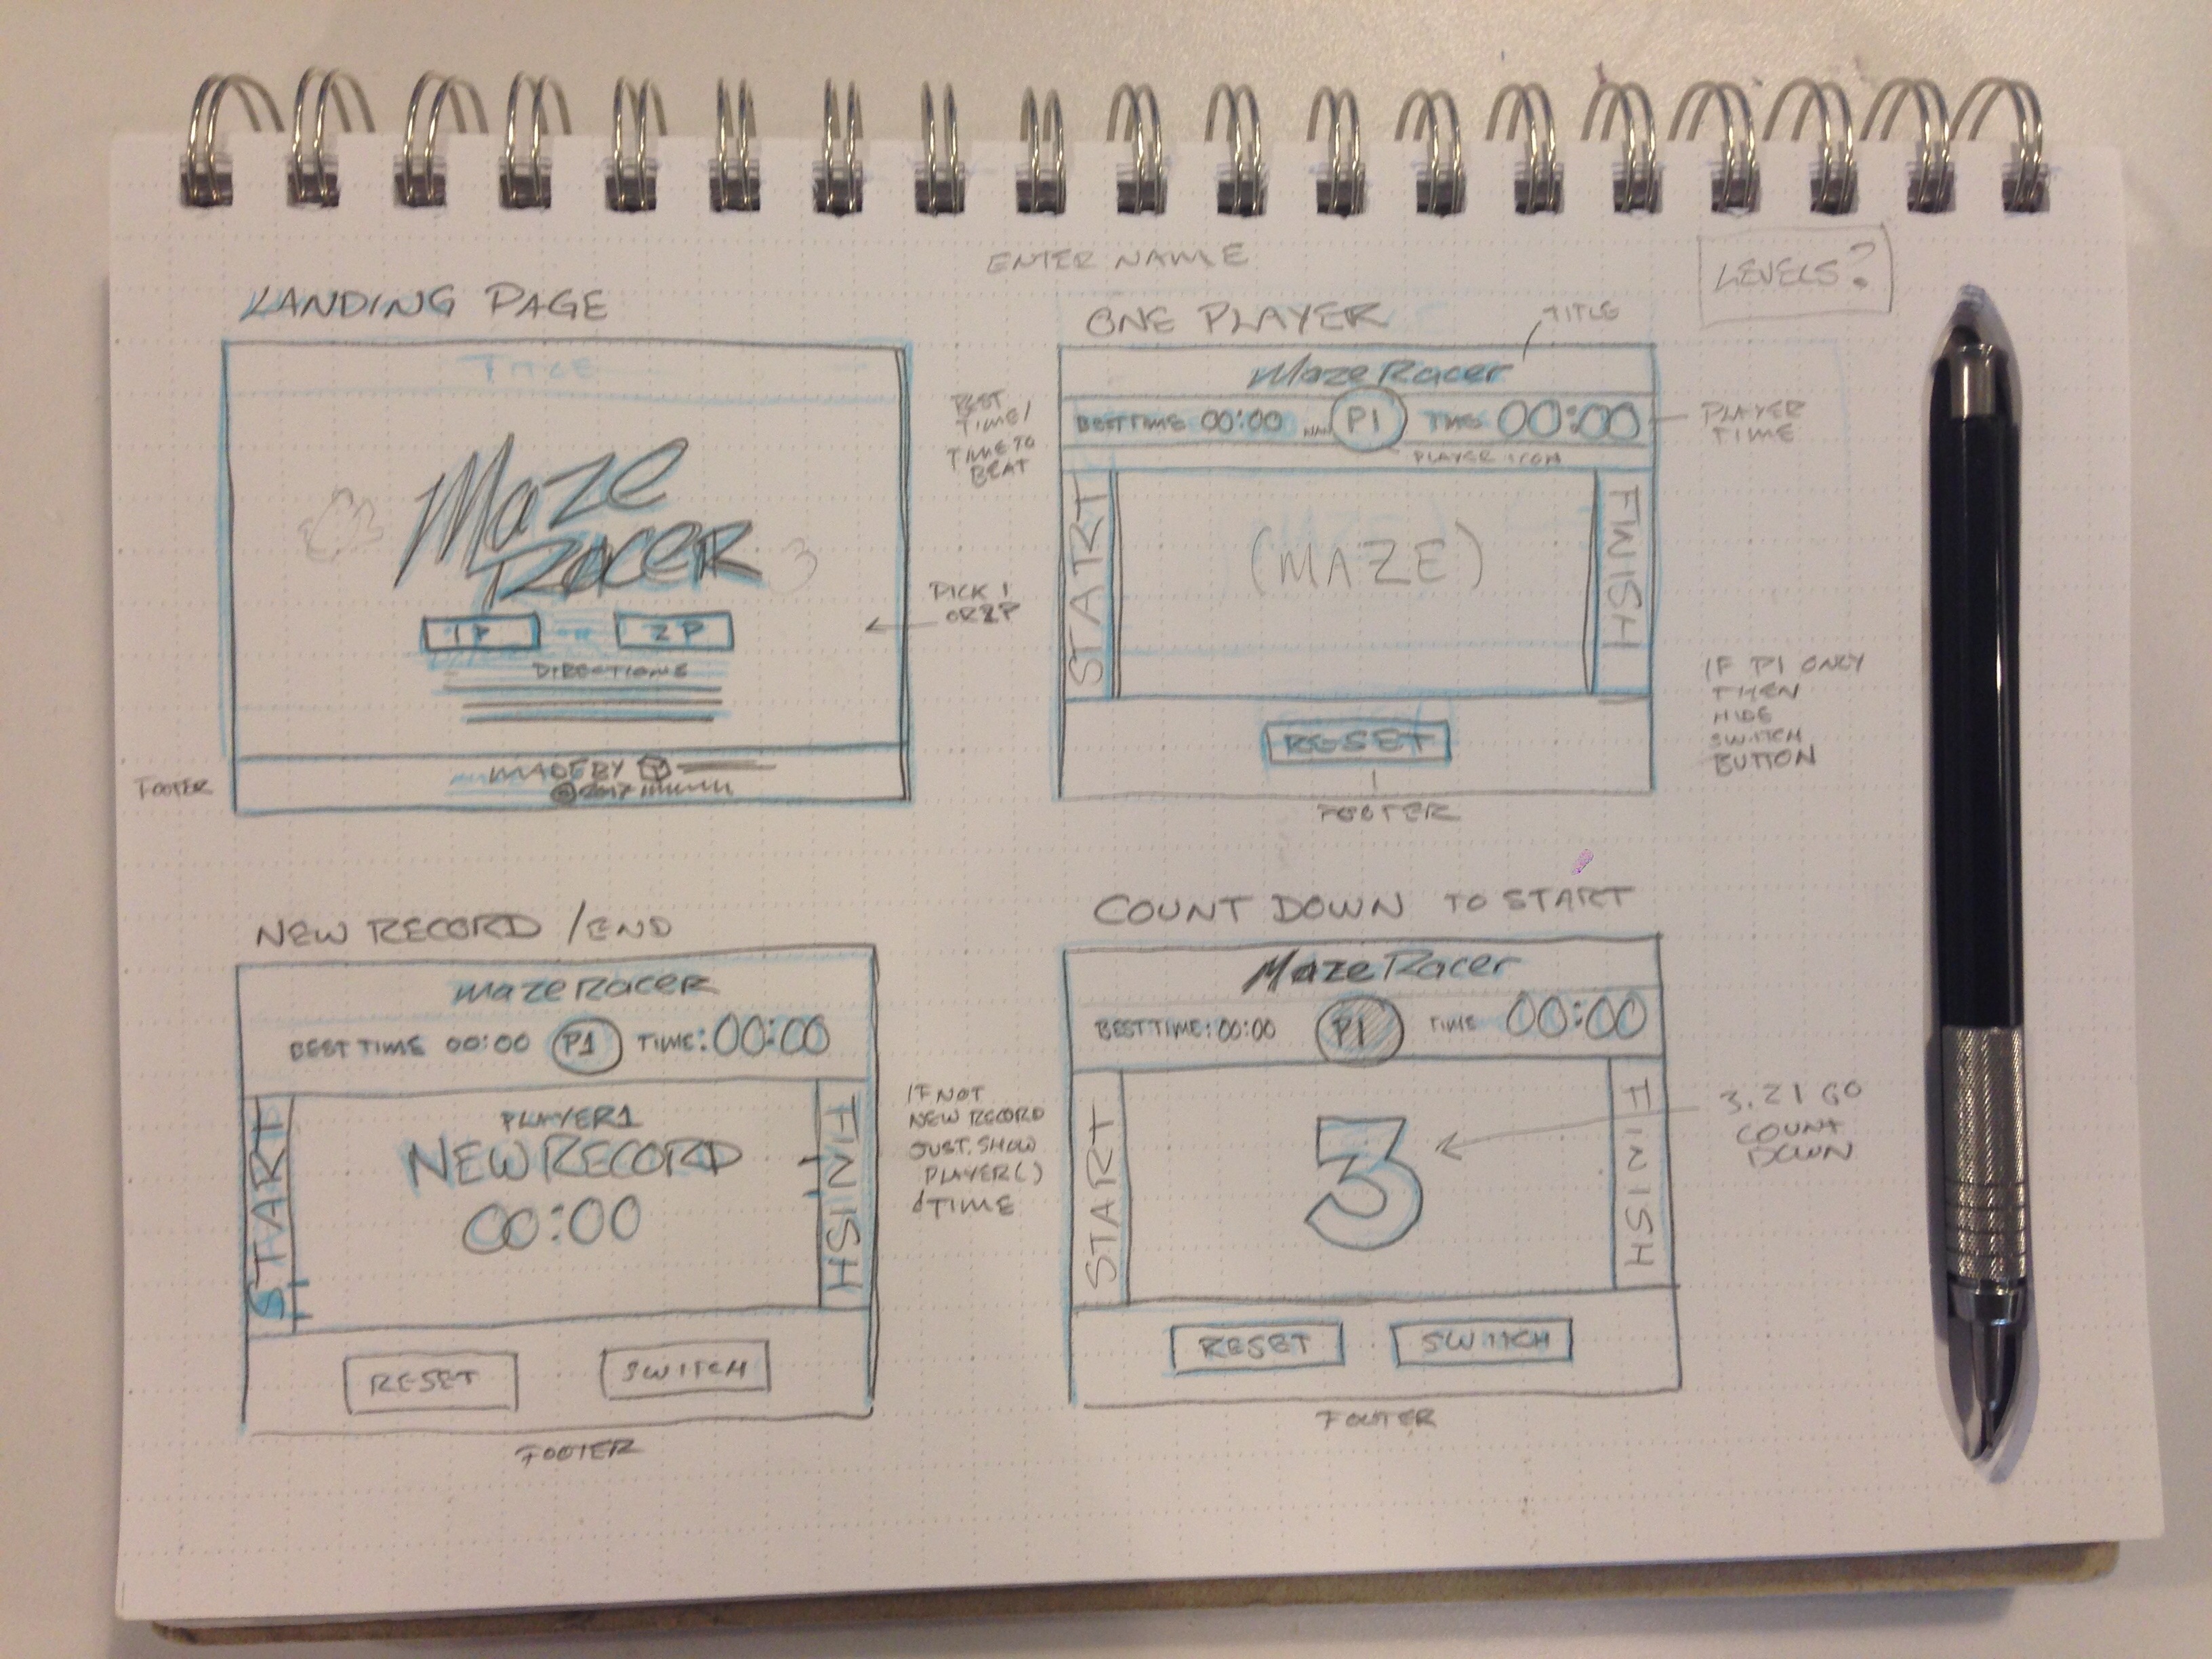 ENTER NAME
LEVELS?
LANDING PAGE
TITLE
Maze
Racer
1P OR 2P
DIRECTIONS
MADE BY
© 2017
FOOTER
PICK 1
OR 2P
ONE PLAYER
TITLE
Maze Racer
BEST TIME 00:00 P1 TIME 00:00
PLAYER ICON
BEST
TIME/
TIME TO
BEAT
PLAYER
TIME
START
(MAZE)
FINISH
RESET
FOOTER
IF P1 ONLY
THEN
HIDE
SWITCH
BUTTON
NEW RECORD /END
Maze Racer
BEST TIME 00:00 P1 TIME: 00:00
START
PLAYER 1
NEW RECORD
00:00
FINISH
RESET SWITCH
FOOTER
IF NOT
NEW RECORD
JUST SHOW
PLAYER ( )
& TIME
COUNT DOWN TO START
Maze Racer
BEST TIME: 00:00 P1 TIME 00:00
START
3
FINISH
RESET SWITCH
FOOTER
3.21 GO
COUNT
DOWN